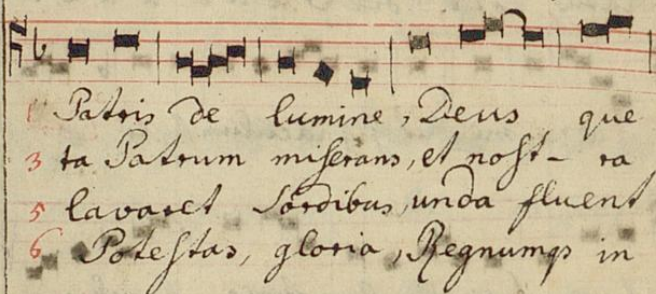 1 Patris de lumine, Deus que
3 ta Patrum miserans, et nost- ra
5 lavaret sordibus, unda fluent
6 Potestas, gloria, Regnumqs in